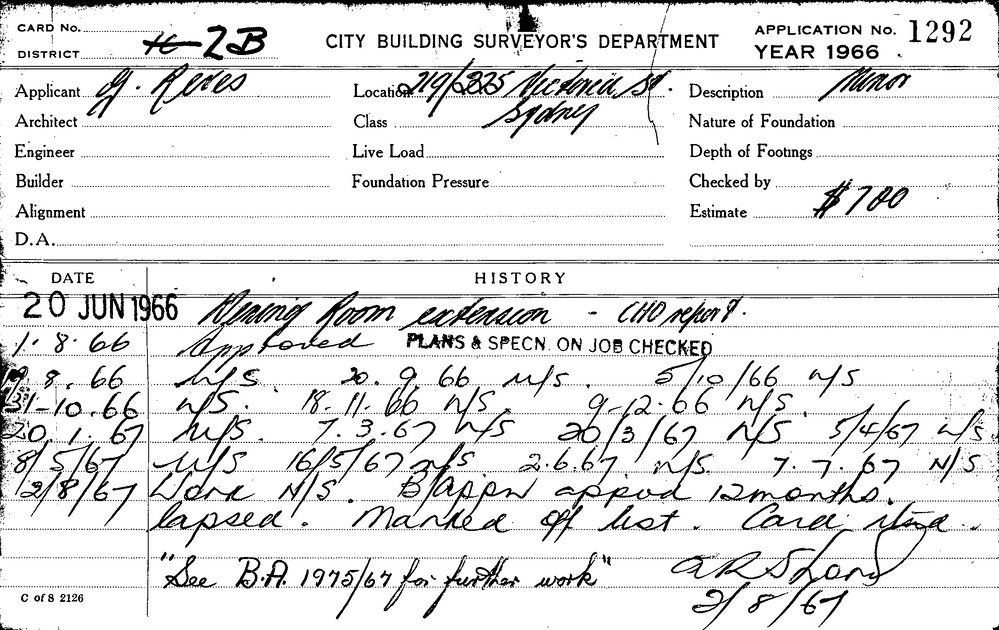 CARD No. CITY BUILDING SURVEYOR'S DEPARTMENT APPLICATION No. 1292
DISTRICT 2B YEAR 1966
Applicant G. Reves Location 219/225 Victoria St. Description Minor
Architect Class Sydney Nature of Foundation
Engineer Live Load Depth of Footings
Builder Foundation Pressure Checked by
Alignment Estimate $700
D.A.
DATE HISTORY
20 JUN 1966 Dining Room extension - CHO report.
1.8.66 Approved PLANS & SPECN. ON JOB CHECKED
8.66 N/S. 20.9.66 N/S. 5/10/66 N/S
31-10.66 N/S. 18.11.66 N/S. 9-12.66 N/S.
20.1.67 N/S. 7.3.67 N/S 20/3/67 N/S 5/4/67 N/S
8/5/67 N/S 16/5/67 N/S. 2.6.67 N/S. 7.7.67 N/S
2/8/67 Work N/S. B/Appn appvd 12 months.
lapsed. Marked off list. Card
"See B.A. 1975/67 for further work"
2/8/67
C of S 2126